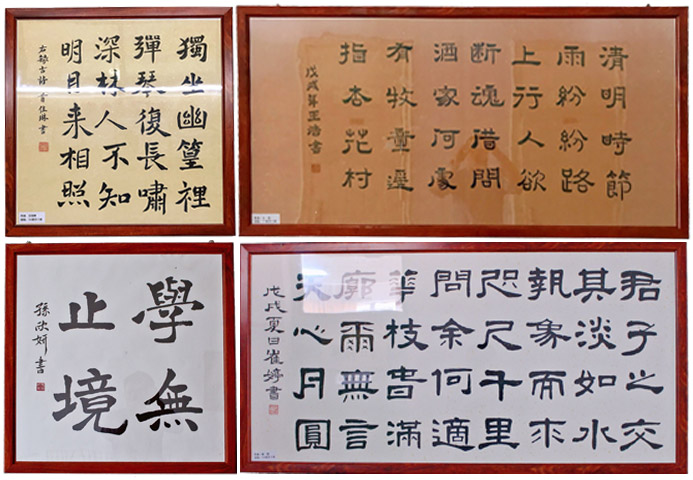 獨坐幽篁裡
彈琴復長嘯
深林人不知
明月来相照
右録古诗一首佳琳書
清明時節
雨紛紛路
上行人欲
断魂借問
酒家何處
有牧童遥
指杏花村
戊戌年王浩書
學無
止境
孫妍書
君子之交
其淡如水
執象而求
咫尺千里
問余何適
華枝春滿
廓雨無言
天心月圓
戊戌夏日崔婷書